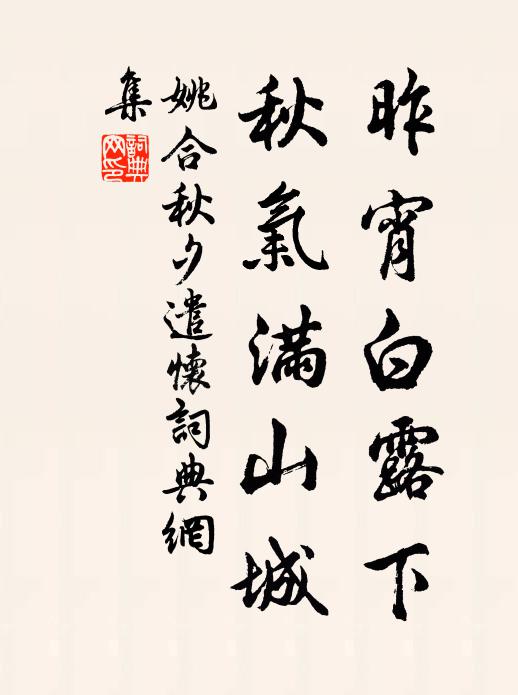 昨宵白露下
秋氣滿山城
姚合秋夕遣懷詞典網
集
詞典網印